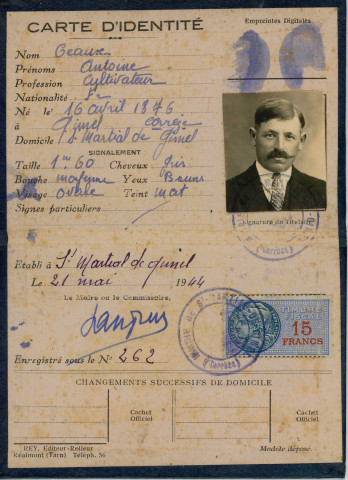 CARTE D'IDENTITÉ
Empreintes Digitales
Nom Ceaux
Prénoms Antoine
Profession Cultivateur
Nationalité Fr
Né le 16 avril 1876
à Gimel Corrèze
Domicile St Martial de Gimel
SIGNALEMENT
Taille 1m60 Cheveux Gris
Bouche moyenne Yeux Bruns
Visage Ovale Teint mat
Signes particuliers
Signature du Titulaire
(Corrèze)
Etabli à St Martial de Gimel
Le 21 mai 1944
Le Maire ou le Commissaire,
MAIRIE DE
(Corrèze)
TIMBRE FISCAL
15
FRANCS
Enregistré sous le N° 262
CHANGEMENTS SUCCESSIFS DE DOMICILE
Cachet Officiel
Cachet Officiel
REY, Editeur-Relieur
Réalmont (Tarn) Téléph. 56
Modèle déposé.